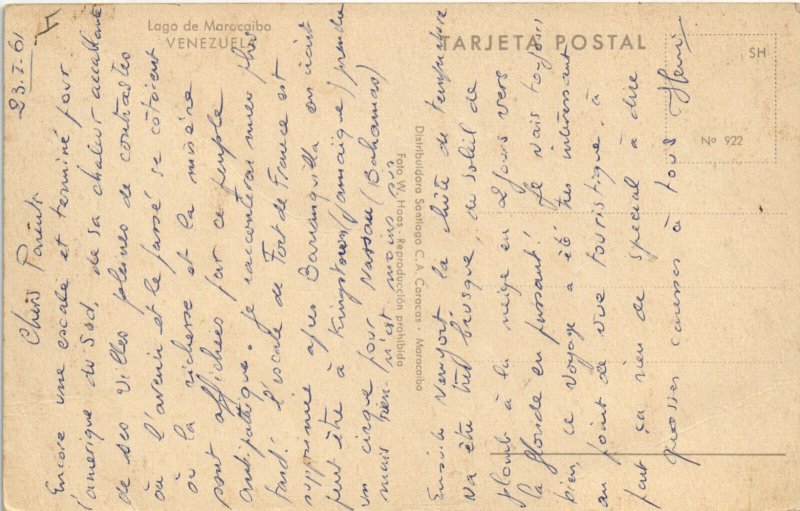 Lago de Maracaibo
VENEZUELA
TARJETA POSTAL
SH
Nº 922
Distribuidora Santiago C. A. Caracas - Maracaibo
Foto W. Haas - Reproducción prohibida
23.I.61
Chers Parents
Encore une escale et terminé pour
l'amérique du Sud, de sa chaleur accablante
de ses villes pleines de contrastes
où l'avenir et le passé se côtoient
où la richesse et la misère
sont affichées par ce peuple
antipathique. Je raconterai mieux plus
tard. L'escale de Fort de France est
supprimée après Barranquilla on irait
peut être à Kingstown (Jamaïque) prendre
un cirque pour Nassau (Bahamas)
mais rien n'est moins sûr
Ensuite Newyork la chûte de température
va être très brusque, du soleil de
plomb à la neige en 2 jours vers
la floride en passant! Je vais toujours
bien, ce voyage a été très intéressant
au point de vue touristique. à
part ça rien de spécial à dire
grosses caresses à tous Henri